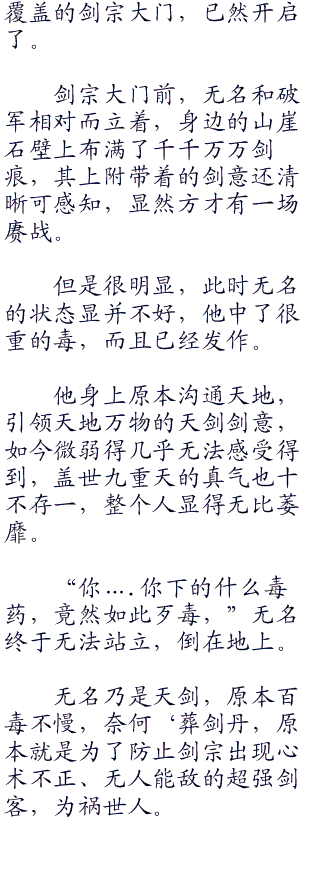 覆盖的剑宗大门，已然开启
了。
剑宗大门前，无名和破
军相对而立着，身边的山崖
石壁上布满了千千万万剑
痕，其上附带着的剑意还清
晰可感知，显然方才有一场
赓战。
但是很明显，此时无名
的状态显并不好，他中了很
重的毒，而且已经发作。
他身上原本沟通天地，
引领天地万物的天剑剑意，
如今微弱得几乎无法感受得
到，盖世九重天的真气也十
不存一，整个人显得无比萎
靡。
“你….你下的什么毒
药，竟然如此歹毒，”无名
终于无法站立，倒在地上。
无名乃是天剑，原本百
毒不慢，奈何‘葬剑丹，原
本就是为了防止剑宗出现心
术不正、无人能敌的超强剑
客，为祸世人。